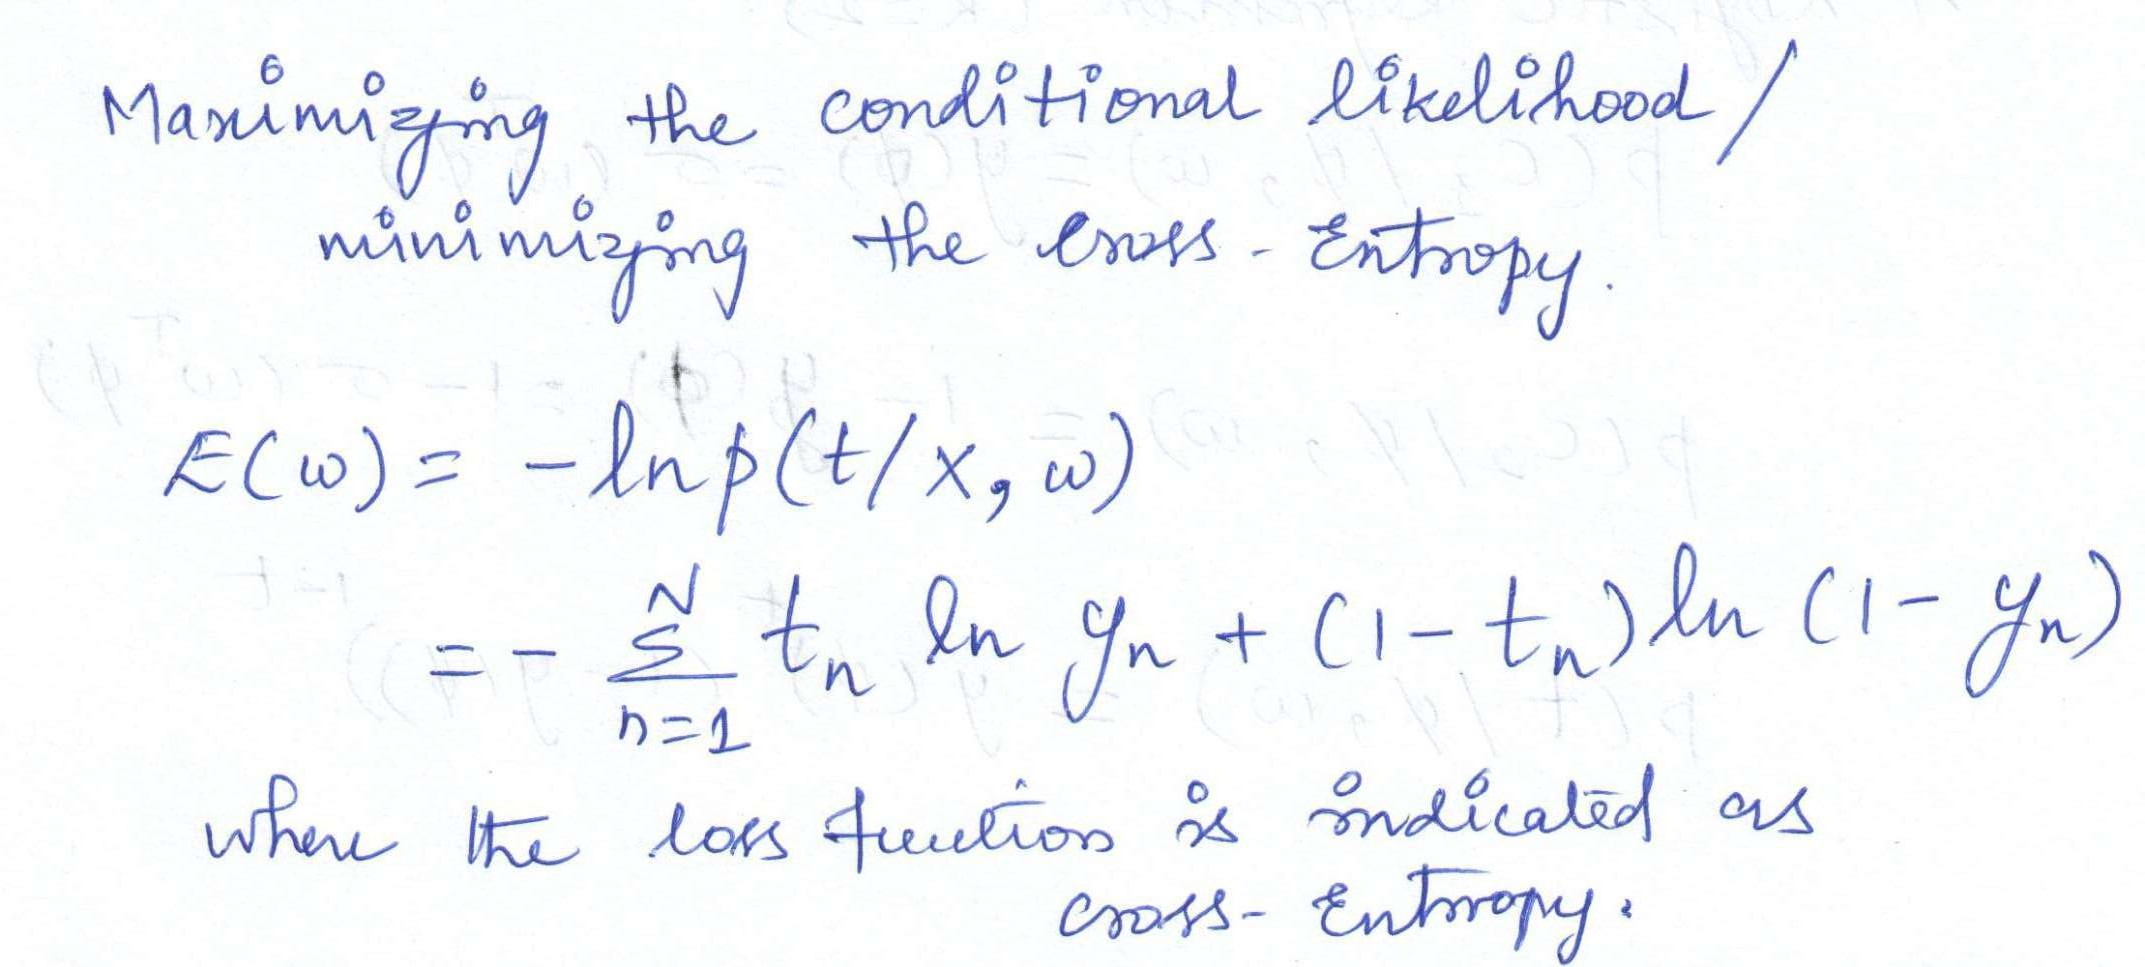 Maximizing the conditional likelihood /
minimizing the Cross-Entropy.
E(w) = - ln p(t/x, w)
= - \sum_{n=1}^{N} t_n ln y_n + (1 - t_n) ln (1 - y_n)
where the loss function is indicated as
cross-Entropy.